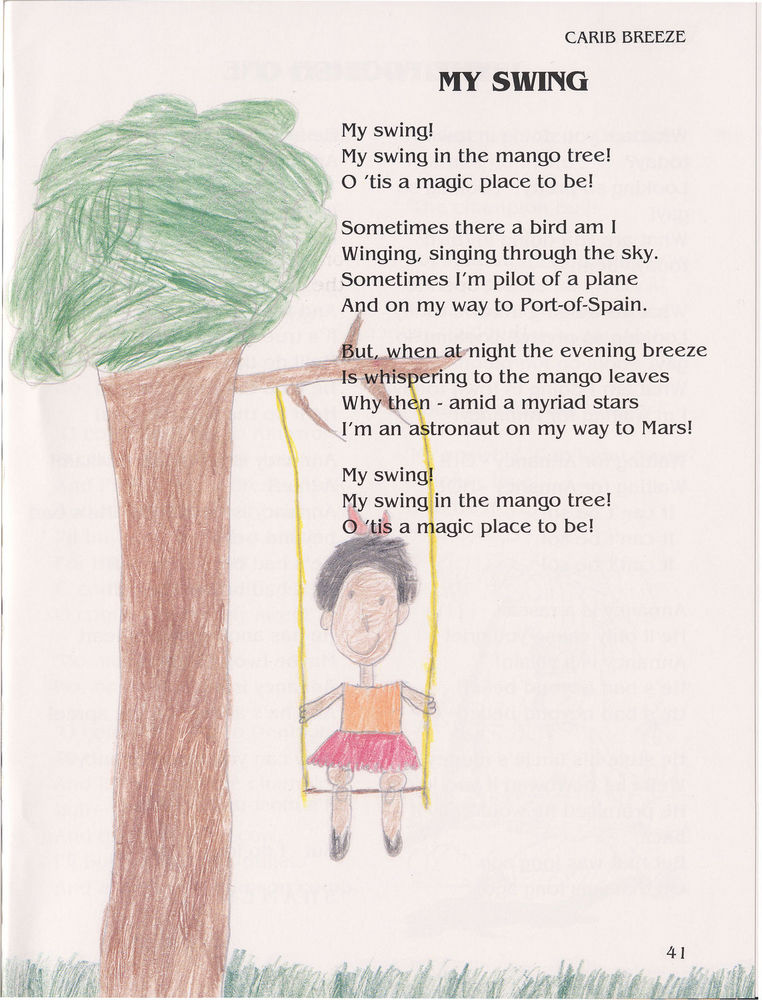 CARIB BREEZE
MY SWING
My swing!
My swing in the mango tree!
O 'tis a magic place to be!
Sometimes there a bird am I
Winging, singing through the sky.
Sometimes I'm pilot of a plane
And on my way to Port-of-Spain.
But, when at night the evening breeze
Is whispering to the mango leaves
Why then - amid a myriad stars
I'm an astronaut on my way to Mars!
My swing!
My swing in the mango tree!
O 'tis a magic place to be!
41